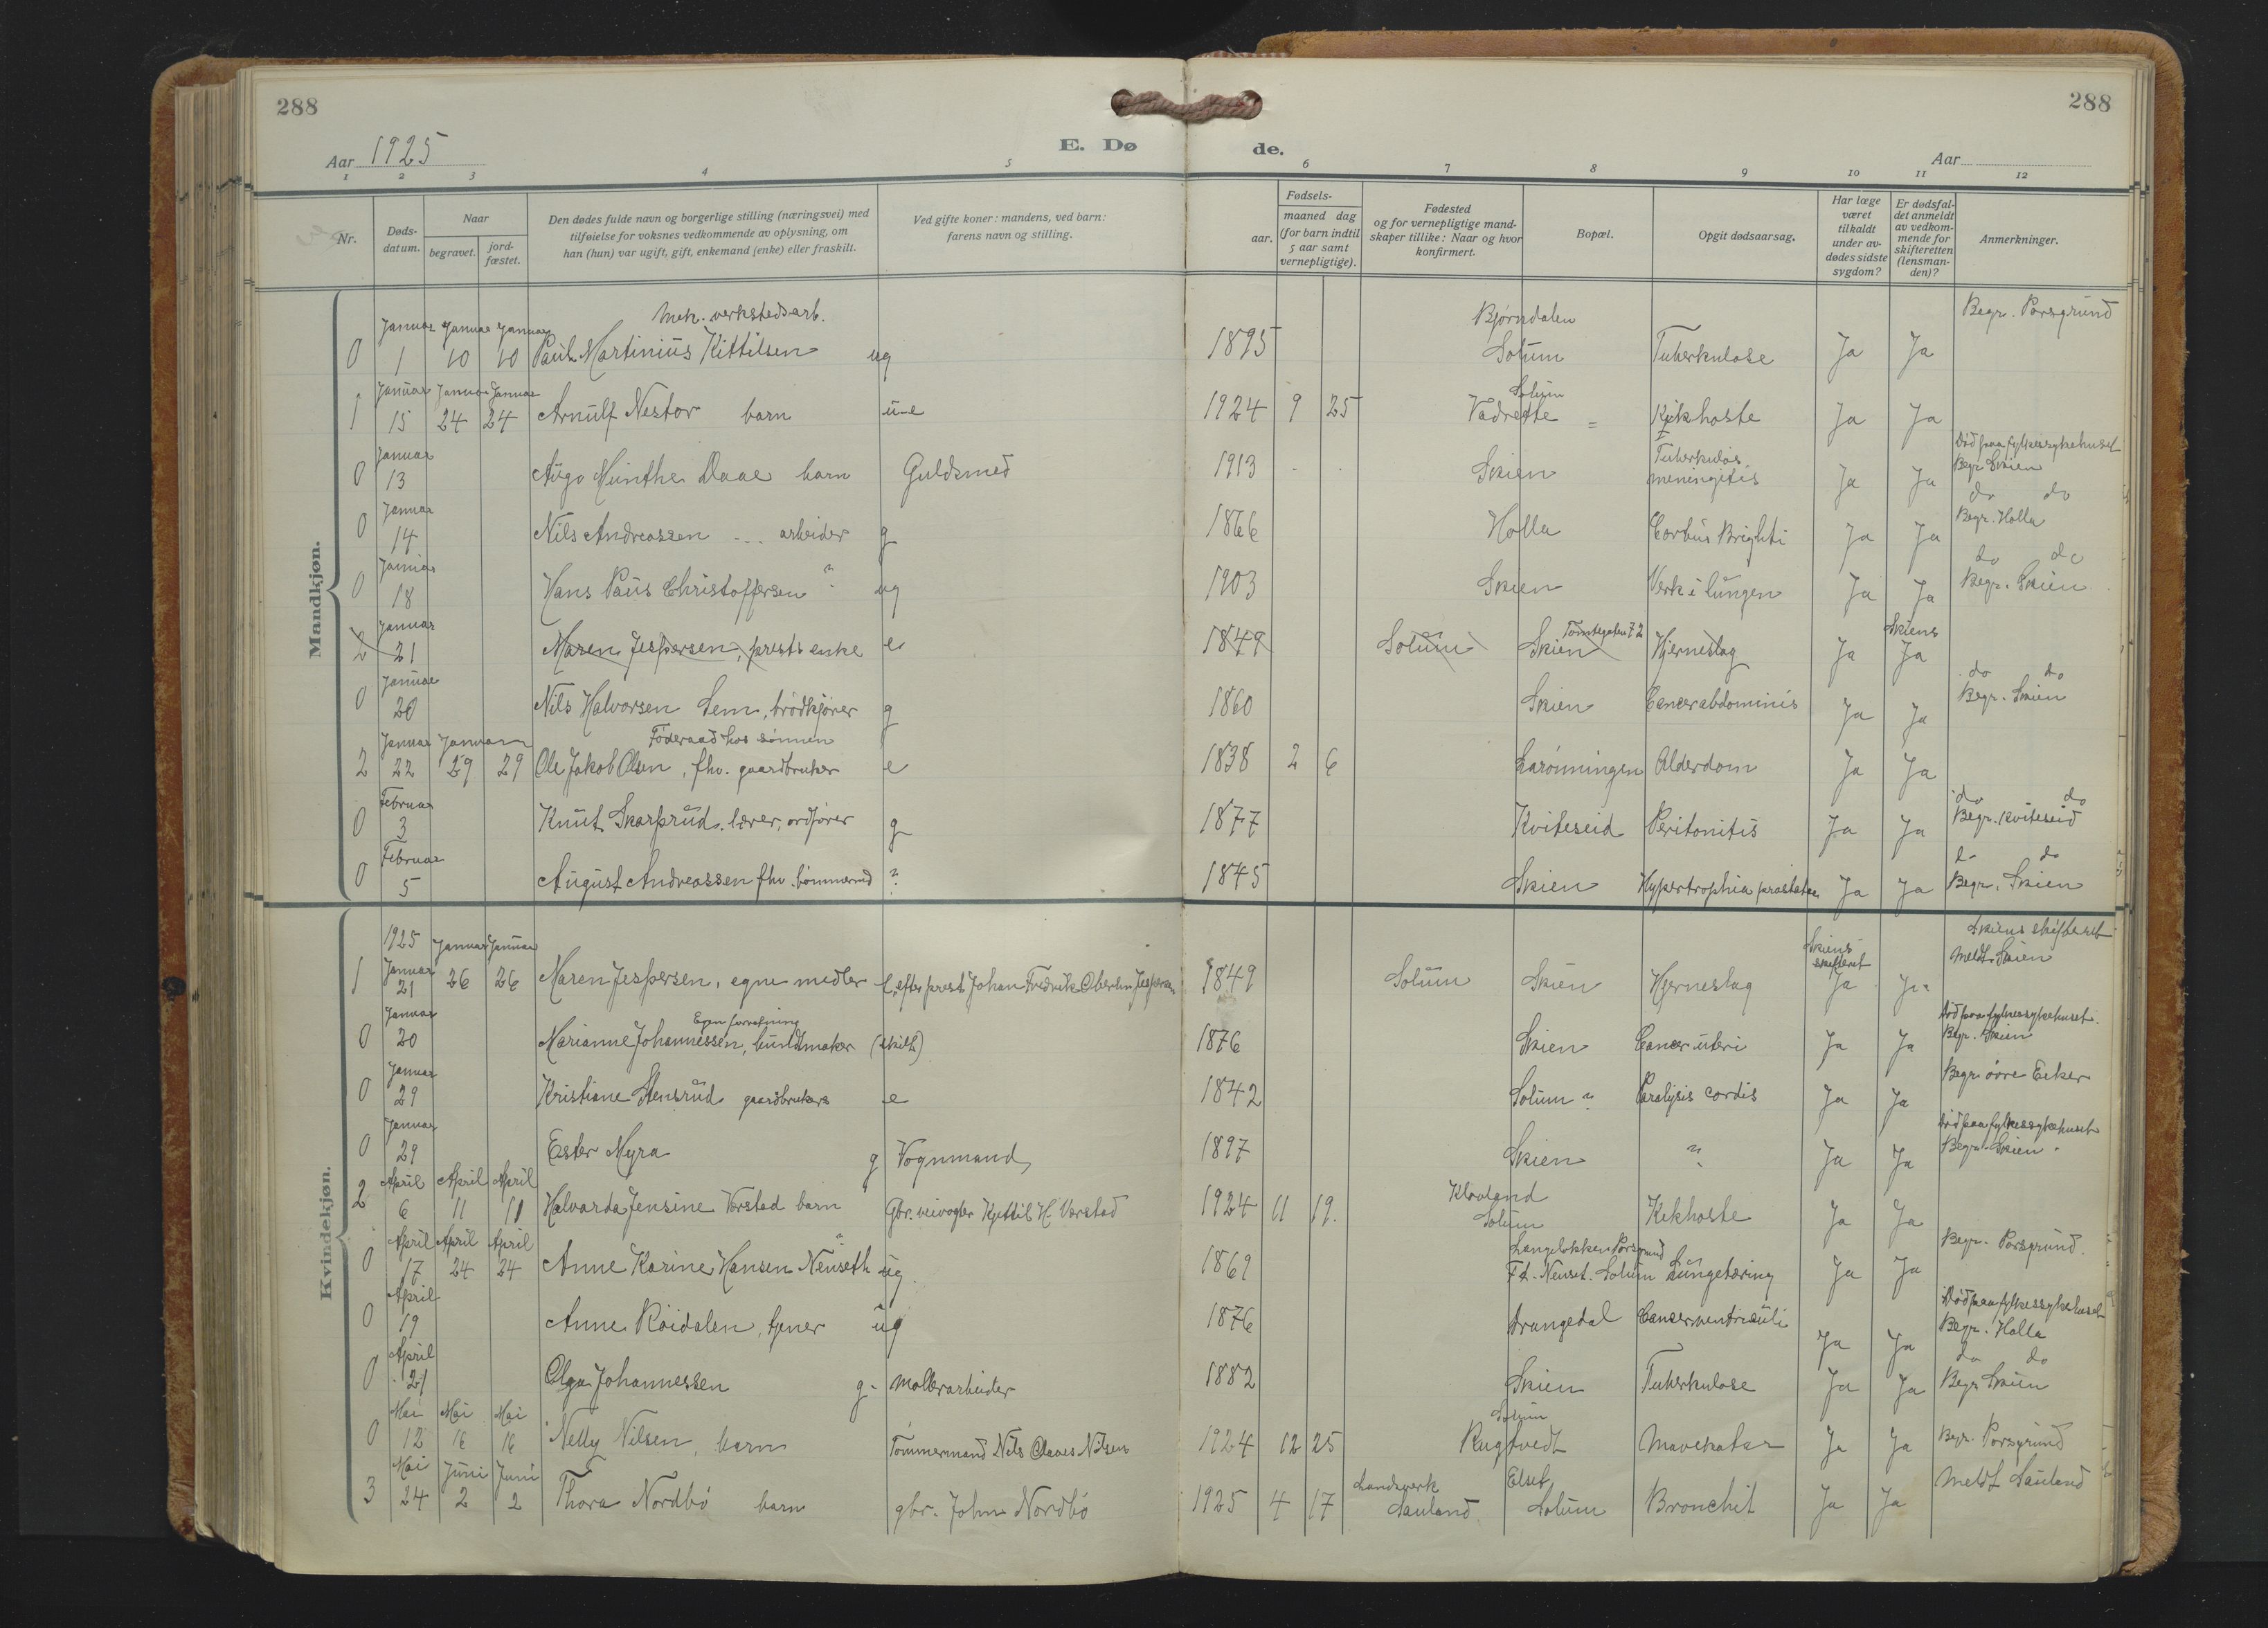 288
288
Aar 1925
E. Dø de.
Aar
1 2 3 4 5 6 7 8 9 10 11 12
Nr.
Døds-datum.
Naar
begravet.
jord-fæstet.
Den dødes fulde navn og borgerlige stilling (næringsvei) med tilføielse for voksnes vedkommende av oplysning, om han (hun) var ugift, gift, enkemand (enke) eller fraskilt.
Ved gifte koner: mandens, ved barn: farens navn og stilling.
Fødsels-
aar.
maaned dag
(for barn indtil 5 aar samt vernepligtige).
Fødested og for vernepligtige mandskaper tillike: Naar og hvor konfirmert.
Bopæl.
Opgit dødsaarsag.
Har læge været tilkaldt under avdødes sidste sygdom?
Er dødsfaldet anmeldt av vedkommende for skifteretten (lensmanden)?
Anmerkninger.
Mandkjøn.
Mek. verkstedsarb. Bjørndalen Begr. Porsgrund
Januar Januar Januar
0 1 10 10 Paul Martinius Kittilsen ug 1895 Solum Tuberkulose Ja Ja
Januar Januar Januar Solum
1 15 24 24 Arnulf Nestor barn u-e 1924 9 25 Vadrette = Kikhoste Ja Ja
Januar Tuberkuløs Død paa fylkessykehuset
0 13 Aago Munthe Daae barn Guldsmed 1913 Skien meningitis Ja Ja Begr. Skien
Januar do do
0 14 Nils Andreassen arbeider g 1866 Holla Corbus Brighti Ja Ja Begr. Holla
Januar do do
0 18 Hans Paus Christoffersen ? ug 1903 Skien Verk i lungen Ja Ja Begr. Skien
Januar Tomtegaten 72 Skiens
2 21 Maren Jespersen, prests enke e 1849 Solum Skien Hjerneslag Ja Ja
Januar do do
0 20 Nils Halvorsen Sem, brødkjører g 1860 Skien Cancer abdominis Ja Ja Begr. Skien
Januar Januar Föderaad hos sønnen
2 22 29 29 Ole Jakob Olsen, fhv. gaardbruker e 1838 2 6 Larønningen Alderdom Ja Ja
Februar do do
0 3 Knut Skarprud, lærer, ordfører g 1877 Kviteseid Peritonitis Ja Ja Begr. Kviteseid
Februar do do
0 5 August Andreassen fhv. tømmermd ? 1845 Skien Hypertrophia prostatae Ja Ja Begr. Skien
Kvindekjøn.
1925 Januar Januar Skiens skifteret Skiens skifteret
1 Januar 21 26 26 Maren Jespersen, egne midler e, efter prest Johan Fredrik Oberlin Jespersen 1849 Solum Skien Hjerneslag Ja Ja meldt Skien
Januar Egen forretning Død paa fylkessykehuset.
0 20 Marianne Johannessen, buntmaker (skilt) 1876 Skien Cancer uteri Ja Ja Begr. Skien
Januar
0 29 Kristiane Stensrud gaardbrukers e 1842 Solum ? Paralysis cordis Ja Ja Begr. øvre Eeker
Januar Død paa fylkessykehuset
0 29 Ester Myra g Vognmand 1897 Skien ? Ja Ja Begr. Skien.
April April April Klovland
2 6 11 11 Halvarda Jensine Vorstad barn Gbr. veivogter Kjettil H. Varstad 1924 11 19. Solum Kikhoste Ja Ja
April April April Langeløkken Porsgrund
0 17 24 24 Anne Karine Hansen Nenseth ug 1869 Ft. Nenset. Solum Lungetæring Ja Ja Begr. Porsgrund.
April Død paa fylkessykehuset
0 19 Anne Röidalen, tjener ug 1876 Drangedal Cancer ventriculi Ja Ja Begr. Holla
April do do
0 21 Olga Johannessen g. Møllerarbeider 1882 Skien Tuberkulose Ja Ja Begr. Skien
Mai Mai Mai Solum
0 12 16 16 Nelly Nilsen, barn Tømmermand Nils Claves Nilsen 1924 12 25 Rugtvedt Mavekatar Ja Ja Begr. Porsgrund
Mai Juni Juni Landsverk Elset
3 24 2 2 Thora Nordbö barn gbr. John Nordbö 1925 4 17 Sauland Solum Bronchit Ja Ja Meldt Sauland